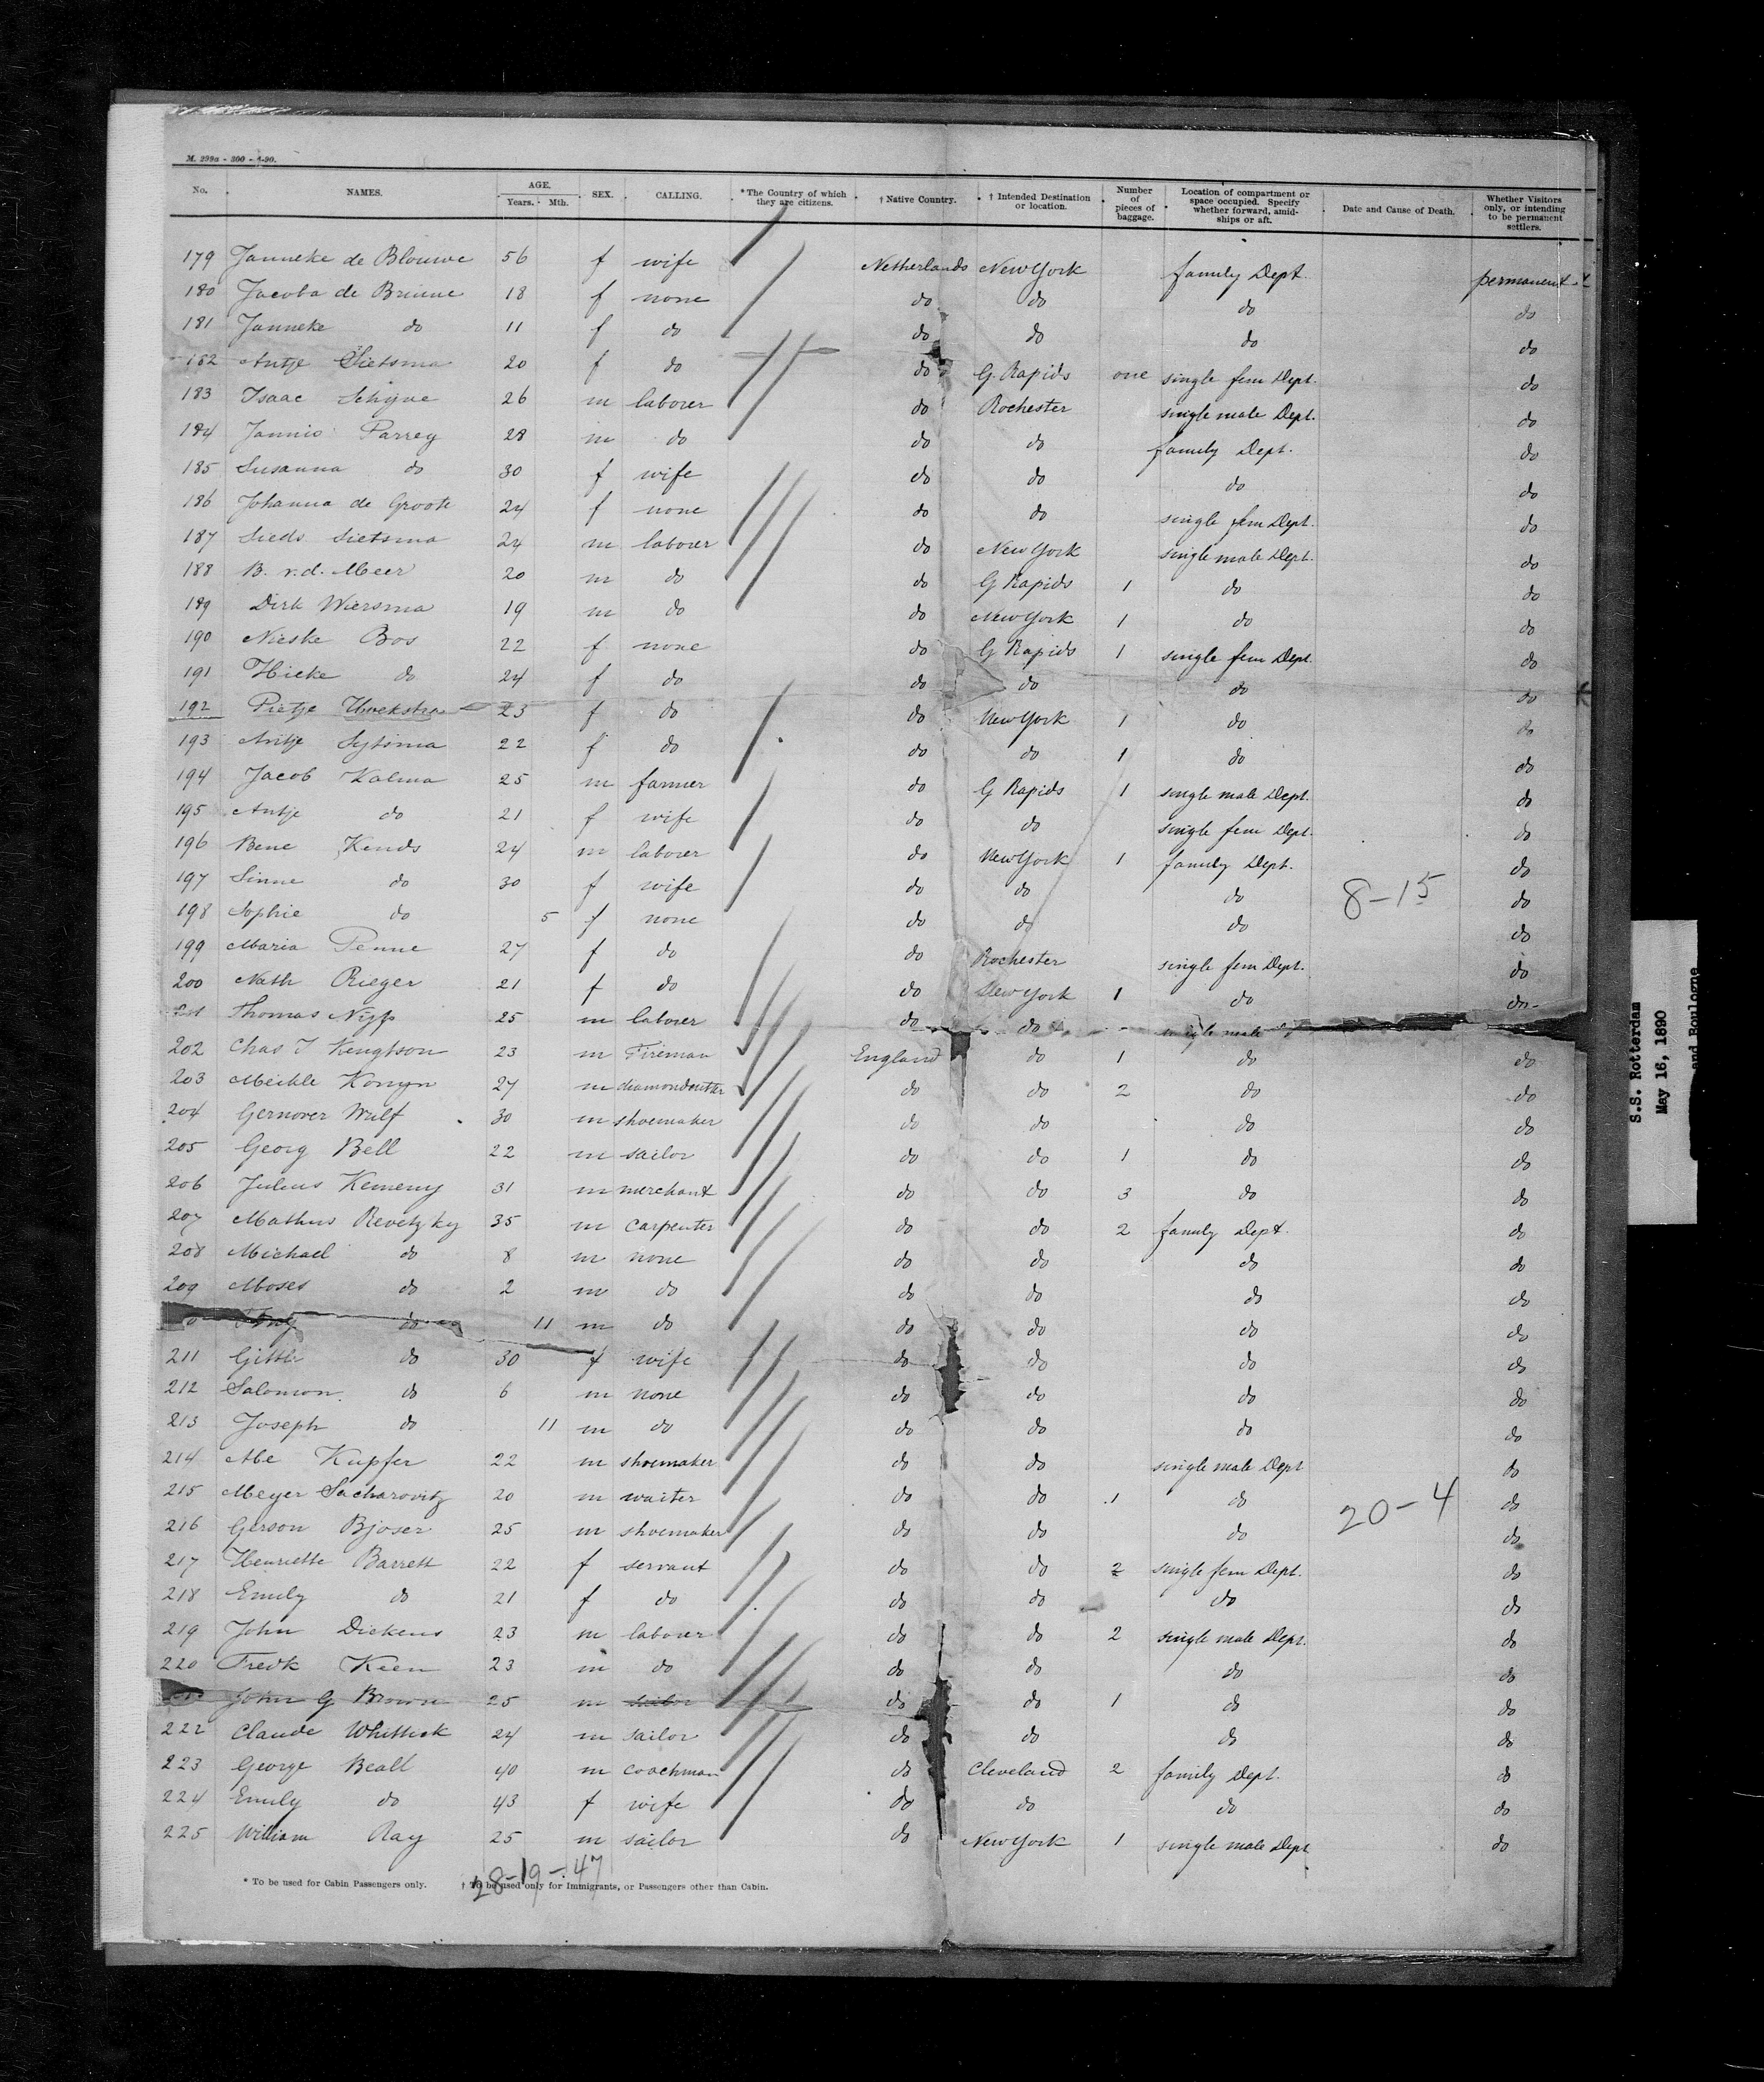 M. 299a - 300 - 4-90.
No. NAMES. AGE. Years. Mth. SEX. CALLING. *The Country of which they are citizens. † Native Country. † Intended Destination or location. Number of pieces of baggage. Location of compartment or space occupied. Specify whether forward, amidships or aft. Date and Cause of Death. Whether Visitors only, or intending to be permanent settlers.
179 Janneke de Blouwe 56 f wife Netherlands New York family Dept. permanent
180 Jacoba de Bruine 18 f none do do do do
181 Janneke do 11 f do do do do do
182 Antje Sietsma 20 f do do G. Rapids one single fem Dept. do
183 Isaac Schijve 26 m laborer do Rochester single male Dept. do
184 Jannis Parrey 28 m do do do family Dept. do
185 Susanna do 30 f wife do do do do
186 Johanna de Groote 24 f none do do single fem Dept. do
187 Sieds Sietsma 24 m laborer do New York single male Dept. do
188 B. v.d. Meer 20 m do do G Rapids 1 do do
189 Dirk Wiersma 19 m do do New York 1 do do
190 Nieske Bos 22 f none do G Rapids 1 single fem Dept. do
191 Hieke do 24 f do do do do do
192 Pietje Hoekstra 23 f do do New York 1 do do
193 Antje Sytsma 22 f do do do 1 do do
194 Jacob Kalma 25 m farmer do G Rapids 1 single male Dept. do
195 Antje do 21 f wife do do single fem Dept. do
196 Bene Kends 24 m laborer do New York 1 family Dept. do
197 Sinne do 30 f wife do do do 8-15 do
198 Sophie do 5 f none do do do do
199 Maria Penne 27 f do do Rochester single fem Dept. do
200 Nath Rieger 21 f do do New York 1 do do
201 Thomas 25 m laborer do do single male do
202 Chas J Kengtson 23 m Fireman England do 1 do do
203 Meikle Konyn 27 m diamondcutter do do 2 do do
204 Gernover Wulf 30 m shoemaker do do do do
205 Georg Bell 22 m sailor do do 1 do do
206 Julius Kemeny 31 m merchant do do 3 do do
207 Mathus Revetzky 35 m carpenter do do 2 family Dept. do
208 Michael do 8 m none do do do do
209 Moses do 2 m do do do do do
do 11 m do do do do do
211 Gittle do 30 f wife do do do do
212 Salomon do 6 m none do do do do
213 Joseph do 11 m do do do do do
214 Abe Kupfer 22 m shoemaker do do single male Dept do
215 Meyer Sacharovitz 20 m waiter do do 1 do 20-4 do
216 Gerson Bjoser 25 m shoemaker do do do do
217 Henriette Barrett 22 f servant do do 2 single fem Dept. do
218 Emily do 21 f do do do do do
219 John Dickens 23 m laborer do do 2 single male Dept. do
220 Fredk Keen 23 m do do do do do
John G Brown 25 m sailor do do 1 do do
222 Claude Whittick 24 m sailor do do do do
223 George Beall 40 m coachman do Cleveland 2 family Dept. do
224 Emily do 43 f wife do do do do
225 William Ray 25 m sailor do New York 1 single male Dept do
28-19-47
* To be used for Cabin Passengers only. † To be used only for Immigrants, or Passengers other than Cabin.
S.S. Rotterdam
May 16, 1890
and Boulogne